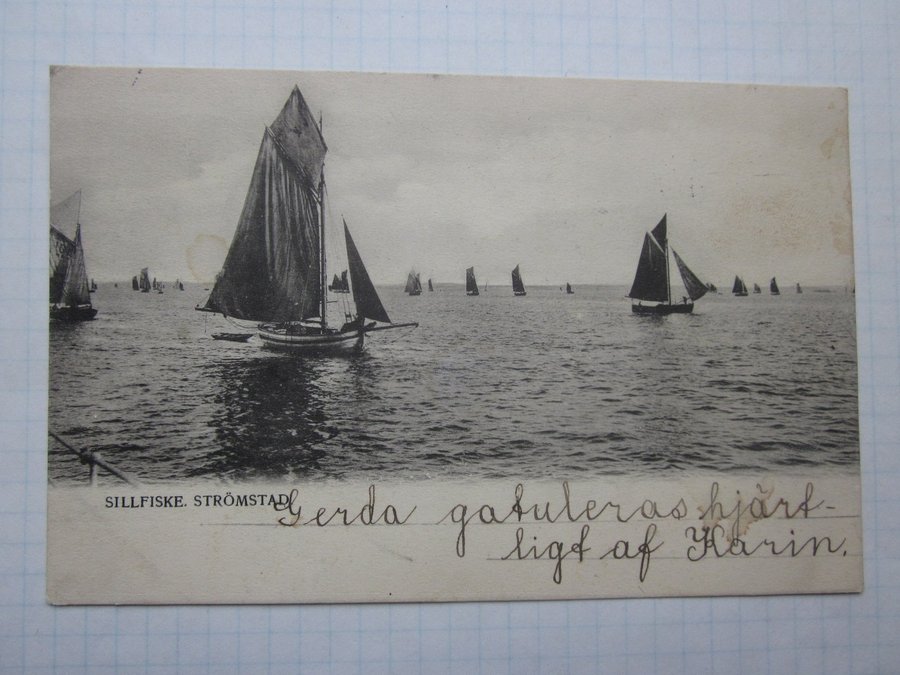 SILLFISKE. STRÖMSTAD
Gerda gatuleras hjärt-
ligt af Karin.